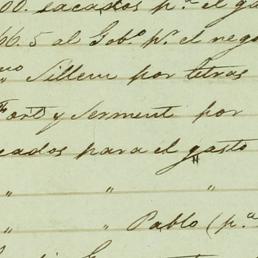 00. sacados p.ª el ga
66.5 al Gob.º p.r el nego
" Sillem por letras
Fort y Serment por
cados para el gasto
" " "
" Pablo (p.ª